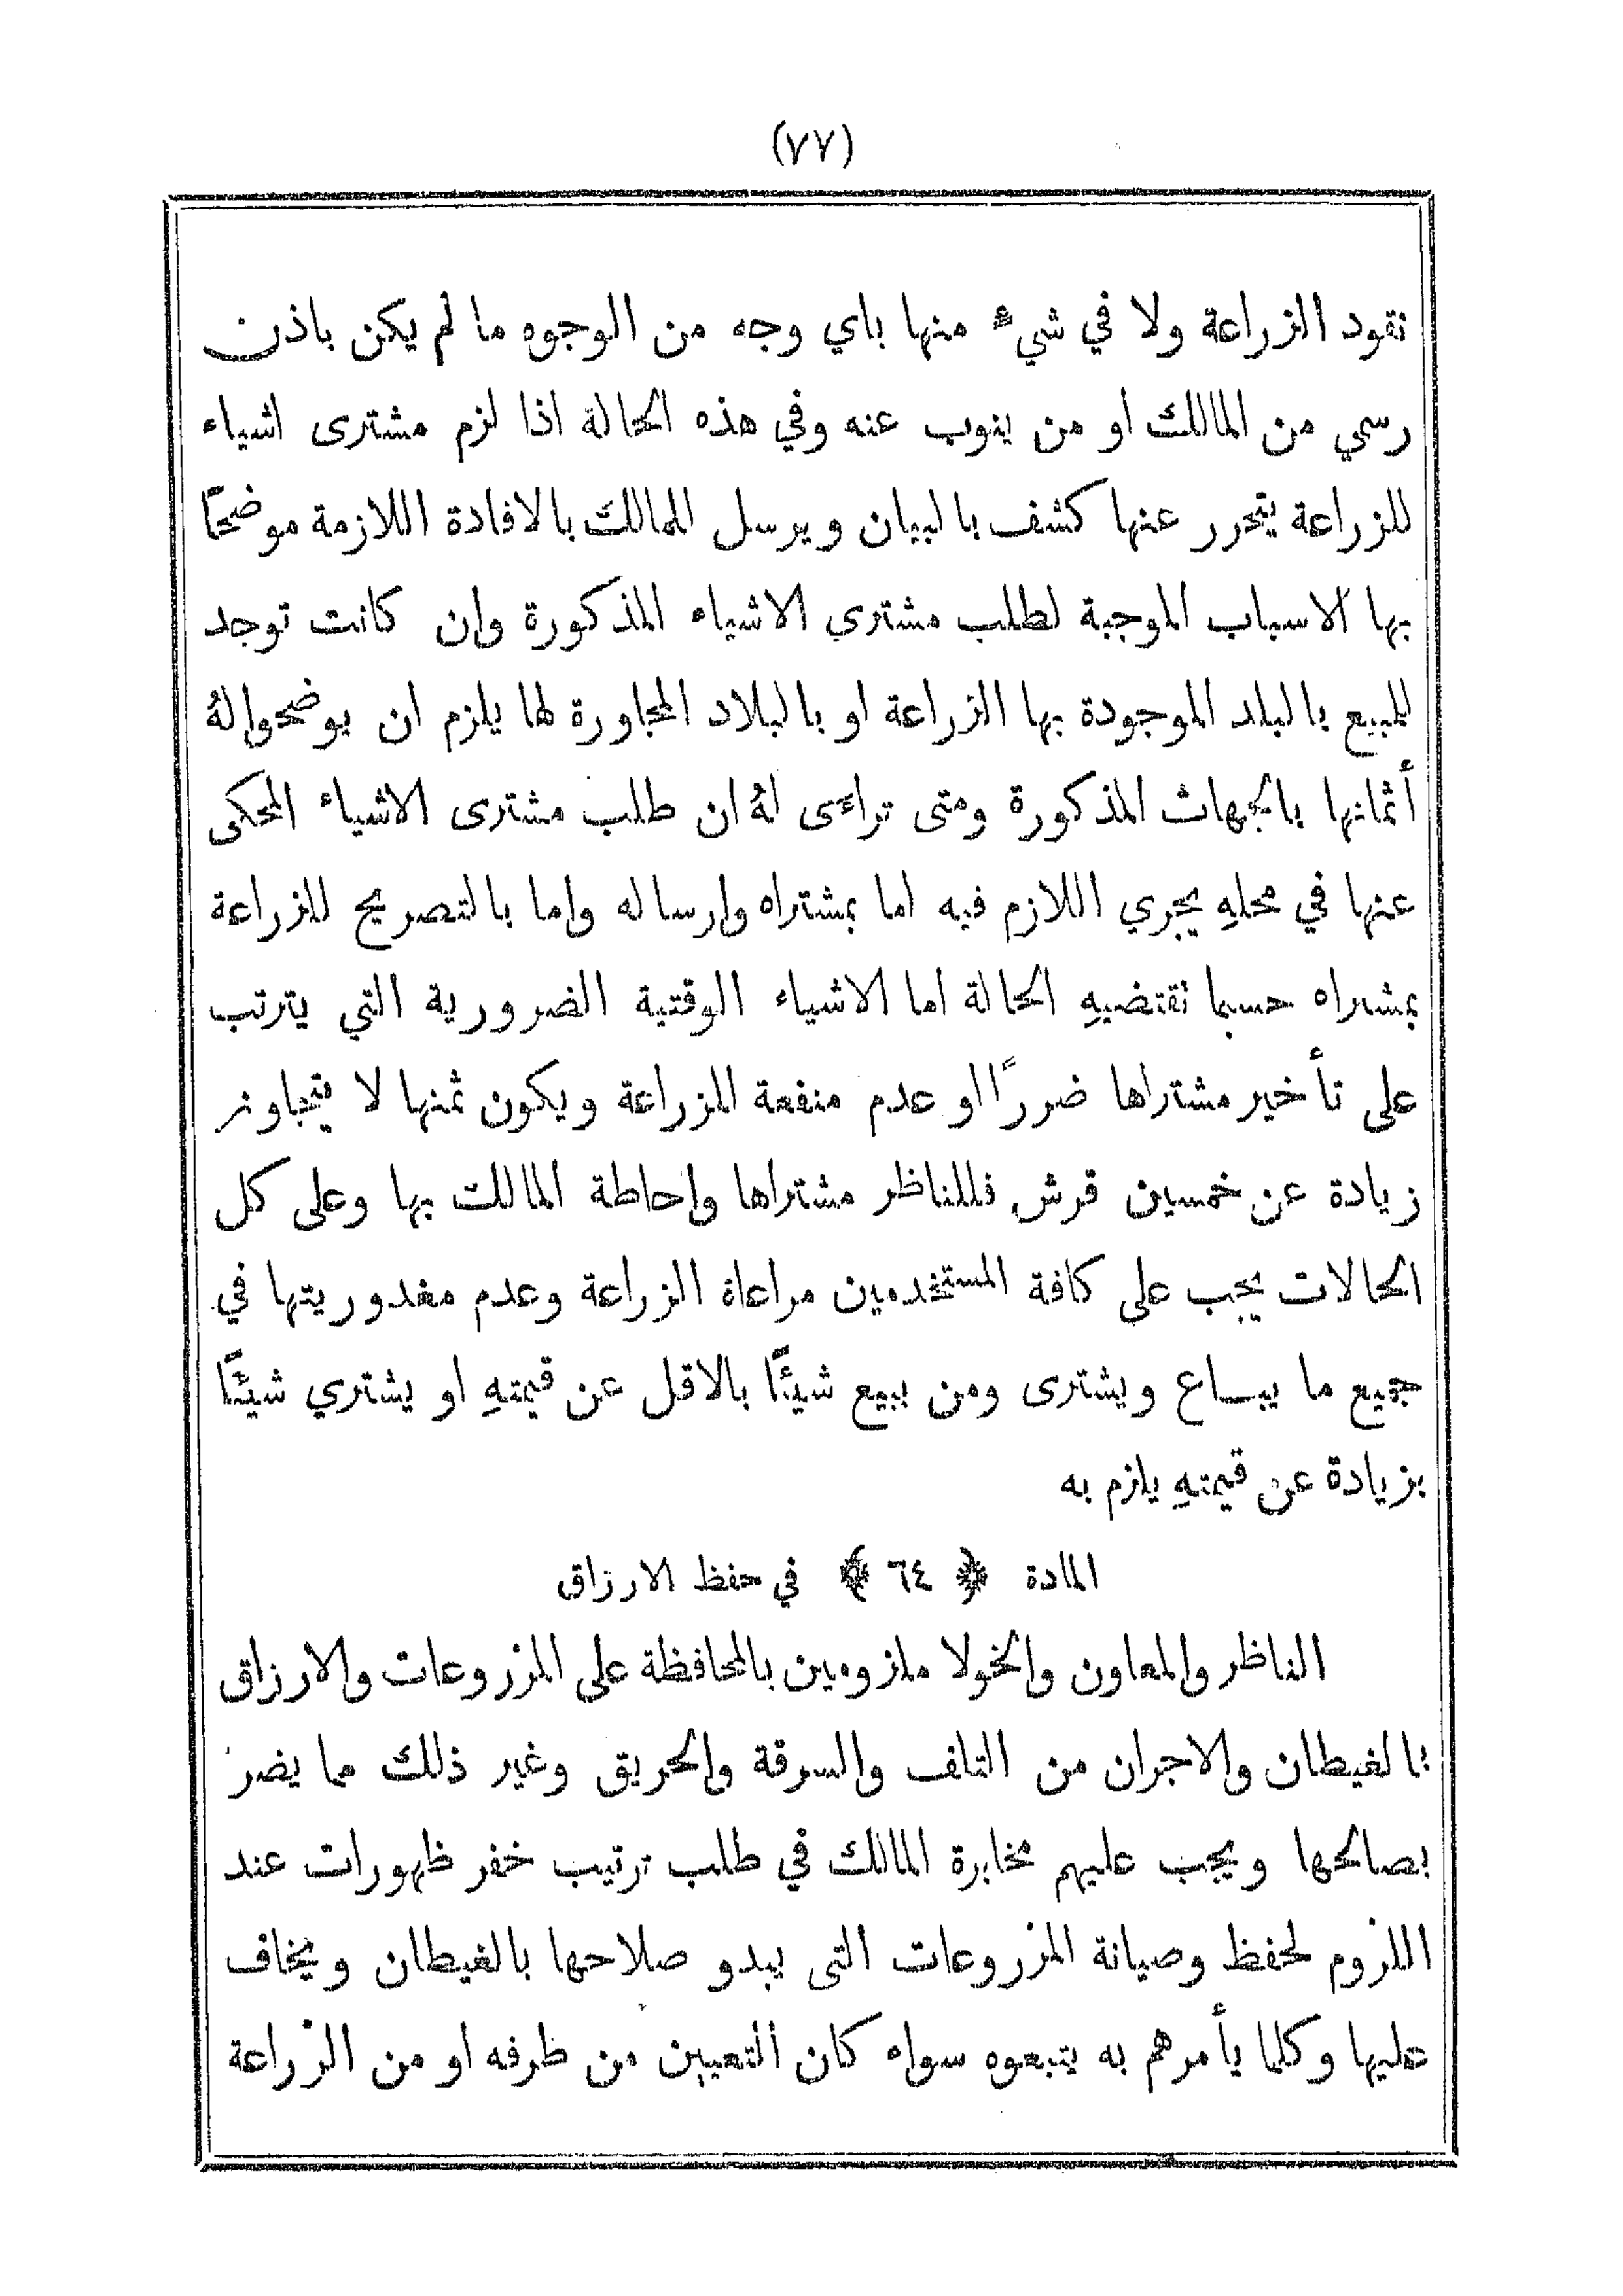 (٧٧)
نقود الزراعة ولا في شيء منها باي وجه من الوجوه ما لم يكن باذن
رسمي من المالك او من ينوب عنه وفي هذه الحالة اذا لزم مشترى اشياء
للزراعة يتحرر عنها كشف بالبيان ويرسل للمالك بالافادة اللازمة موضحًا
بها الاسباب الموجبة لطلب مشتري الاشياء المذكورة وان كانت توجد
للمبيع بالبلد الموجودة بها الزراعة او بالبلاد المجاورة لها يلزم ان يوضحوا لهُ
أثمانها بالجهات المذكورة ومتى تراءى لهُ ان طلب مشترى الاشياء المحكى
عنها في محلهِ يجري اللازم فيه اما بمشتراه وارساله واما بالتصريح للزراعة
بمشتراه حسبما تقتضيهِ الحالة اما الاشياء الوقتية الضرورية التي يترتب
على تأخير مشتراها ضررًا او عدم منفعة للزراعة ويكون ثمنها لا يتجاوز
زيادة عن خمسين قرش فللناظر مشتراها واحاطة المالك بها وعلى كل
الحالات يجب على كافة المستخدمين مراعاة الزراعة وعدم مغدوريتها في
جميع ما يبـاع ويشترى ومن يبيع شيئًا بالاقل عن قيمتهِ او يشتري شيئًا
بزيادة عن قيمتهِ يلزم به
المادة ﴿ ٦٤ ﴾ في حفظ الارزاق
الناظر والمعاون والخولا ملزومين بالمحافظة على المزروعات والارزاق
بالغيطان والاجران من التلف والسرقة والحريق وغير ذلك مما يضر
بصالحها ويجب عليهم مخابرة المالك في طلب ترتيب خفر ظهورات عند
اللزوم لحفظ وصيانة المزروعات التى يبدو صلاحها بالغيطان ويخاف
عليها وكلما يأمرهم به يتبعوه سواء كان التعيين من طرفه او من الزراعة